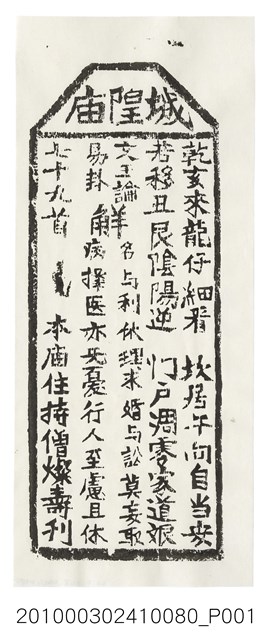 城隍庙
乾亥來龍仔細看 坎居午向自当安
若移丑艮陰陽逆 门户凋零家道艱
文王論 觧 名与利伙理求 婚与訟莫妄取
易卦 病擇医亦无憂 行人至慮且休
七十九首 本庙住持僧燦壽刊
201000302410080_P001